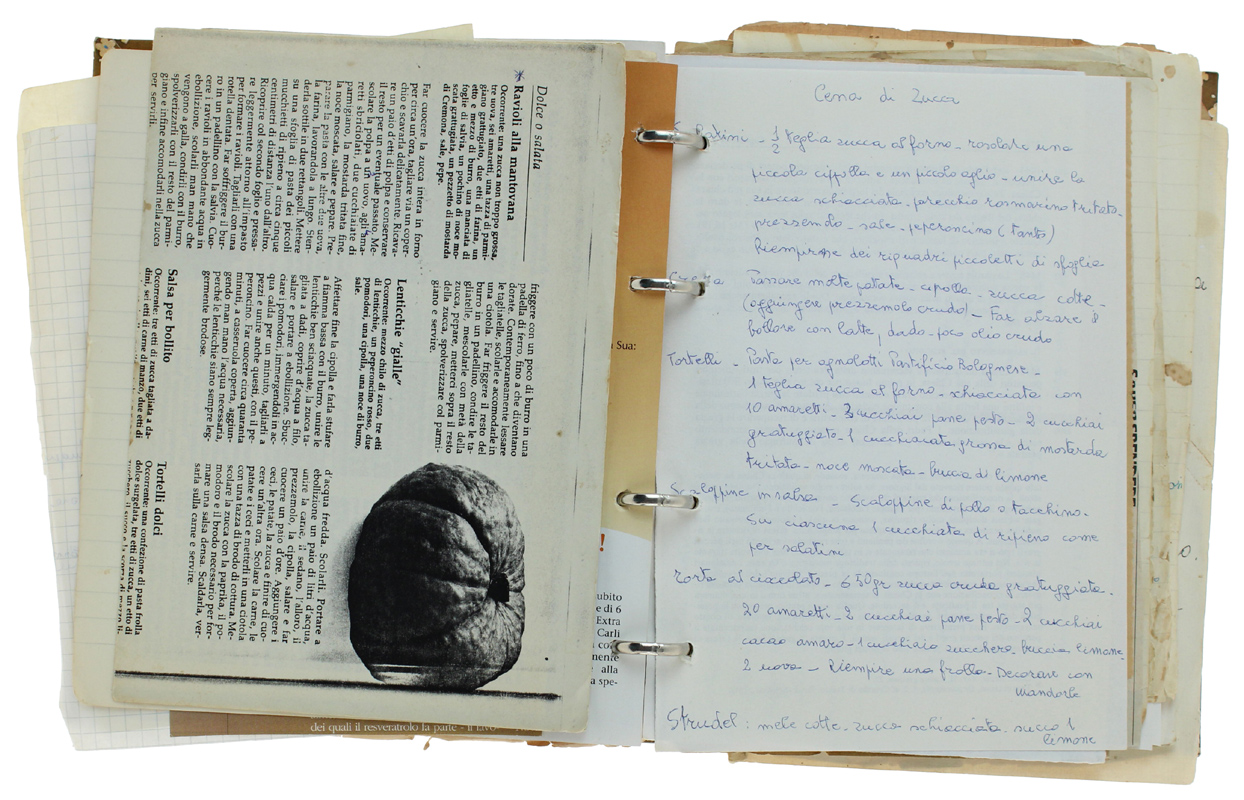 Dolce o salata
* Ravioli alla mantovana
Occorrente: una zucca non troppo grossa,
tre uova, sei amaretti, una tazza di parmi-
giano grattugiato, due etti di farina, un
etto e mezzo di burro, una manciata di
foglie di salvia, un pochino di noce mo-
scata grattugiata, un pezzetto di mostarda
di Cremona, sale, pepe.
Far cuocere la zucca intera in forno
per circa un'ora, tagliare via un coper-
chio e scavarla delicatamente. Ricava-
re un paio d'etti di polpa e conservare
il resto per un eventuale passato. Me-
scolare la polpa a un uovo, agli ama-
retti sbriciolati, due cucchiaiate di
parmigiano, la mostarda tritata fine,
la noce moscata, salare e pepare. Pre-
parare la pasta con le altre due uova,
la farina, lavorandola a lungo. Sten-
derla sottile in due rettangoli. Mettere
su una sfoglia di pasta dei piccoli
mucchietti di ripieno a circa cinque
centimetri di distanza l'uno dall'altro.
Ricoprire col secondo foglio e pressa-
re leggermente attorno all'impasto
per formare i ravioli. Tagliarli con una
rotella dentata. Far soffriggere il bur-
ro in un padellino con la salvia. Cuo-
cere i ravioli in abbondante acqua in
ebollizione, scolarli man mano che
vengono a galla, condirli con il burro,
spolverizzarli con il resto del parmi-
giano e infine accomodarli nella zucca
per servirli.
friggere con un poco di burro in una
padella di ferro, fino a che diventano
dorate. Contemporaneamente lessare
le tagliatelle, scolarle e accomodarle in
una ciotola. Far friggere il resto del
burro in un padellino, condire le ta-
gliatelle, mescolarle con metà della
zucca, pepare, metterci sopra il resto
della zucca, spolverizzare col parmi-
giano e servire.
Lenticchie "gialle"
Occorrente: mezzo chilo di zucca, tre etti
di lenticchie, un peperoncino rosso, due
pomodori, una cipolla, una noce di burro,
sale.
Affettare fine la cipolla e farla stufare
a fiamma bassa con il burro, unire le
lenticchie ben sciacquate, la zucca ta-
gliata a dadi, coprire d'acqua a filo,
salare e portare a ebollizione. Sbuc-
ciare i pomodori, immergendoli in ac-
qua calda per un minuto, tagliarli a
pezzi e unire anche questi, con il pe-
peroncino. Far cuocere circa quaranta
minuti, a casseruola coperta, aggiun-
gendo man mano l'acqua necessaria,
perché le lenticchie siano sempre leg-
germente brodose.
Salsa per bollito
Occorrente: tre etti di zucca tagliata a da-
dini, sei etti di carne di manzo, due etti di
d'acqua fredda. Scolarli. Portare a
ebollizione un paio di litri d'acqua,
unire la carne, il sedano, l'alloro, il
prezzemolo, la cipolla, salare e far
cuocere un paio d'ore. Aggiungere i
ceci, le patate, la zucca e finire di cuo-
cere un'altra ora. Scolare la carne, le
patate e i ceci e metterli in una ciotola
con una tazza di brodo di cottura. Me-
scolare la zucca con la paprika, il po-
modoro e il brodo necessario per for-
mare una salsa densa. Scaldarla, ver-
sarla sulla carne e servire.
Tortelli dolci
Occorrente: una confezione di pasta frolla
dolce surgelata, tre etti di zucca, un etto di
dei quali il resveratrolo la parte
Sua:
!
ubito
e di 6
Extra
Carli
nente
alla
a spe-
Cena di Zucca
1/2 teglia zucca al forno - rosolate una
piccola cipolla e un piccolo aglio - unire la
zucca schiacciata - parecchio rosmarino tritato -
prezzemolo - sale - peperoncino (tanto)
Riempirne dei riquadri piccoletti di sfoglia
Passare molte patate - cipolla - zucca cotte -
(aggiungere prezzemolo crudo) - Far alzare il
bollore con latte, dado - poco olio crudo
Tortelli - Pasta per agnolotti Pastificio Bolognese -
1 Teglia zucca al forno - schiacciata con
10 amaretti - 3 cucchiai pane pesto - 2 cucchiai
grattuggiato - 1 cucchiaiata grossa di mostarda
tritata - noce moscata - buccia di limone
Scaloppine in salsa - Scaloppine di pollo o tacchino -
Su ciascuna 1 cucchiaiata di ripieno come
per salatini
Torta al cioccolato - 650 gr zucca cruda grattuggiata -
20 amaretti - 2 cucchiai pane pesto - 2 cucchiai
cacao amaro - 1 cucchiaio zucchero - buccia limone -
2 uova - Riempire una frolla - Decorare con
Mandorle
Strudel: mele cotte - zucca schiacciata - succo 1
limone